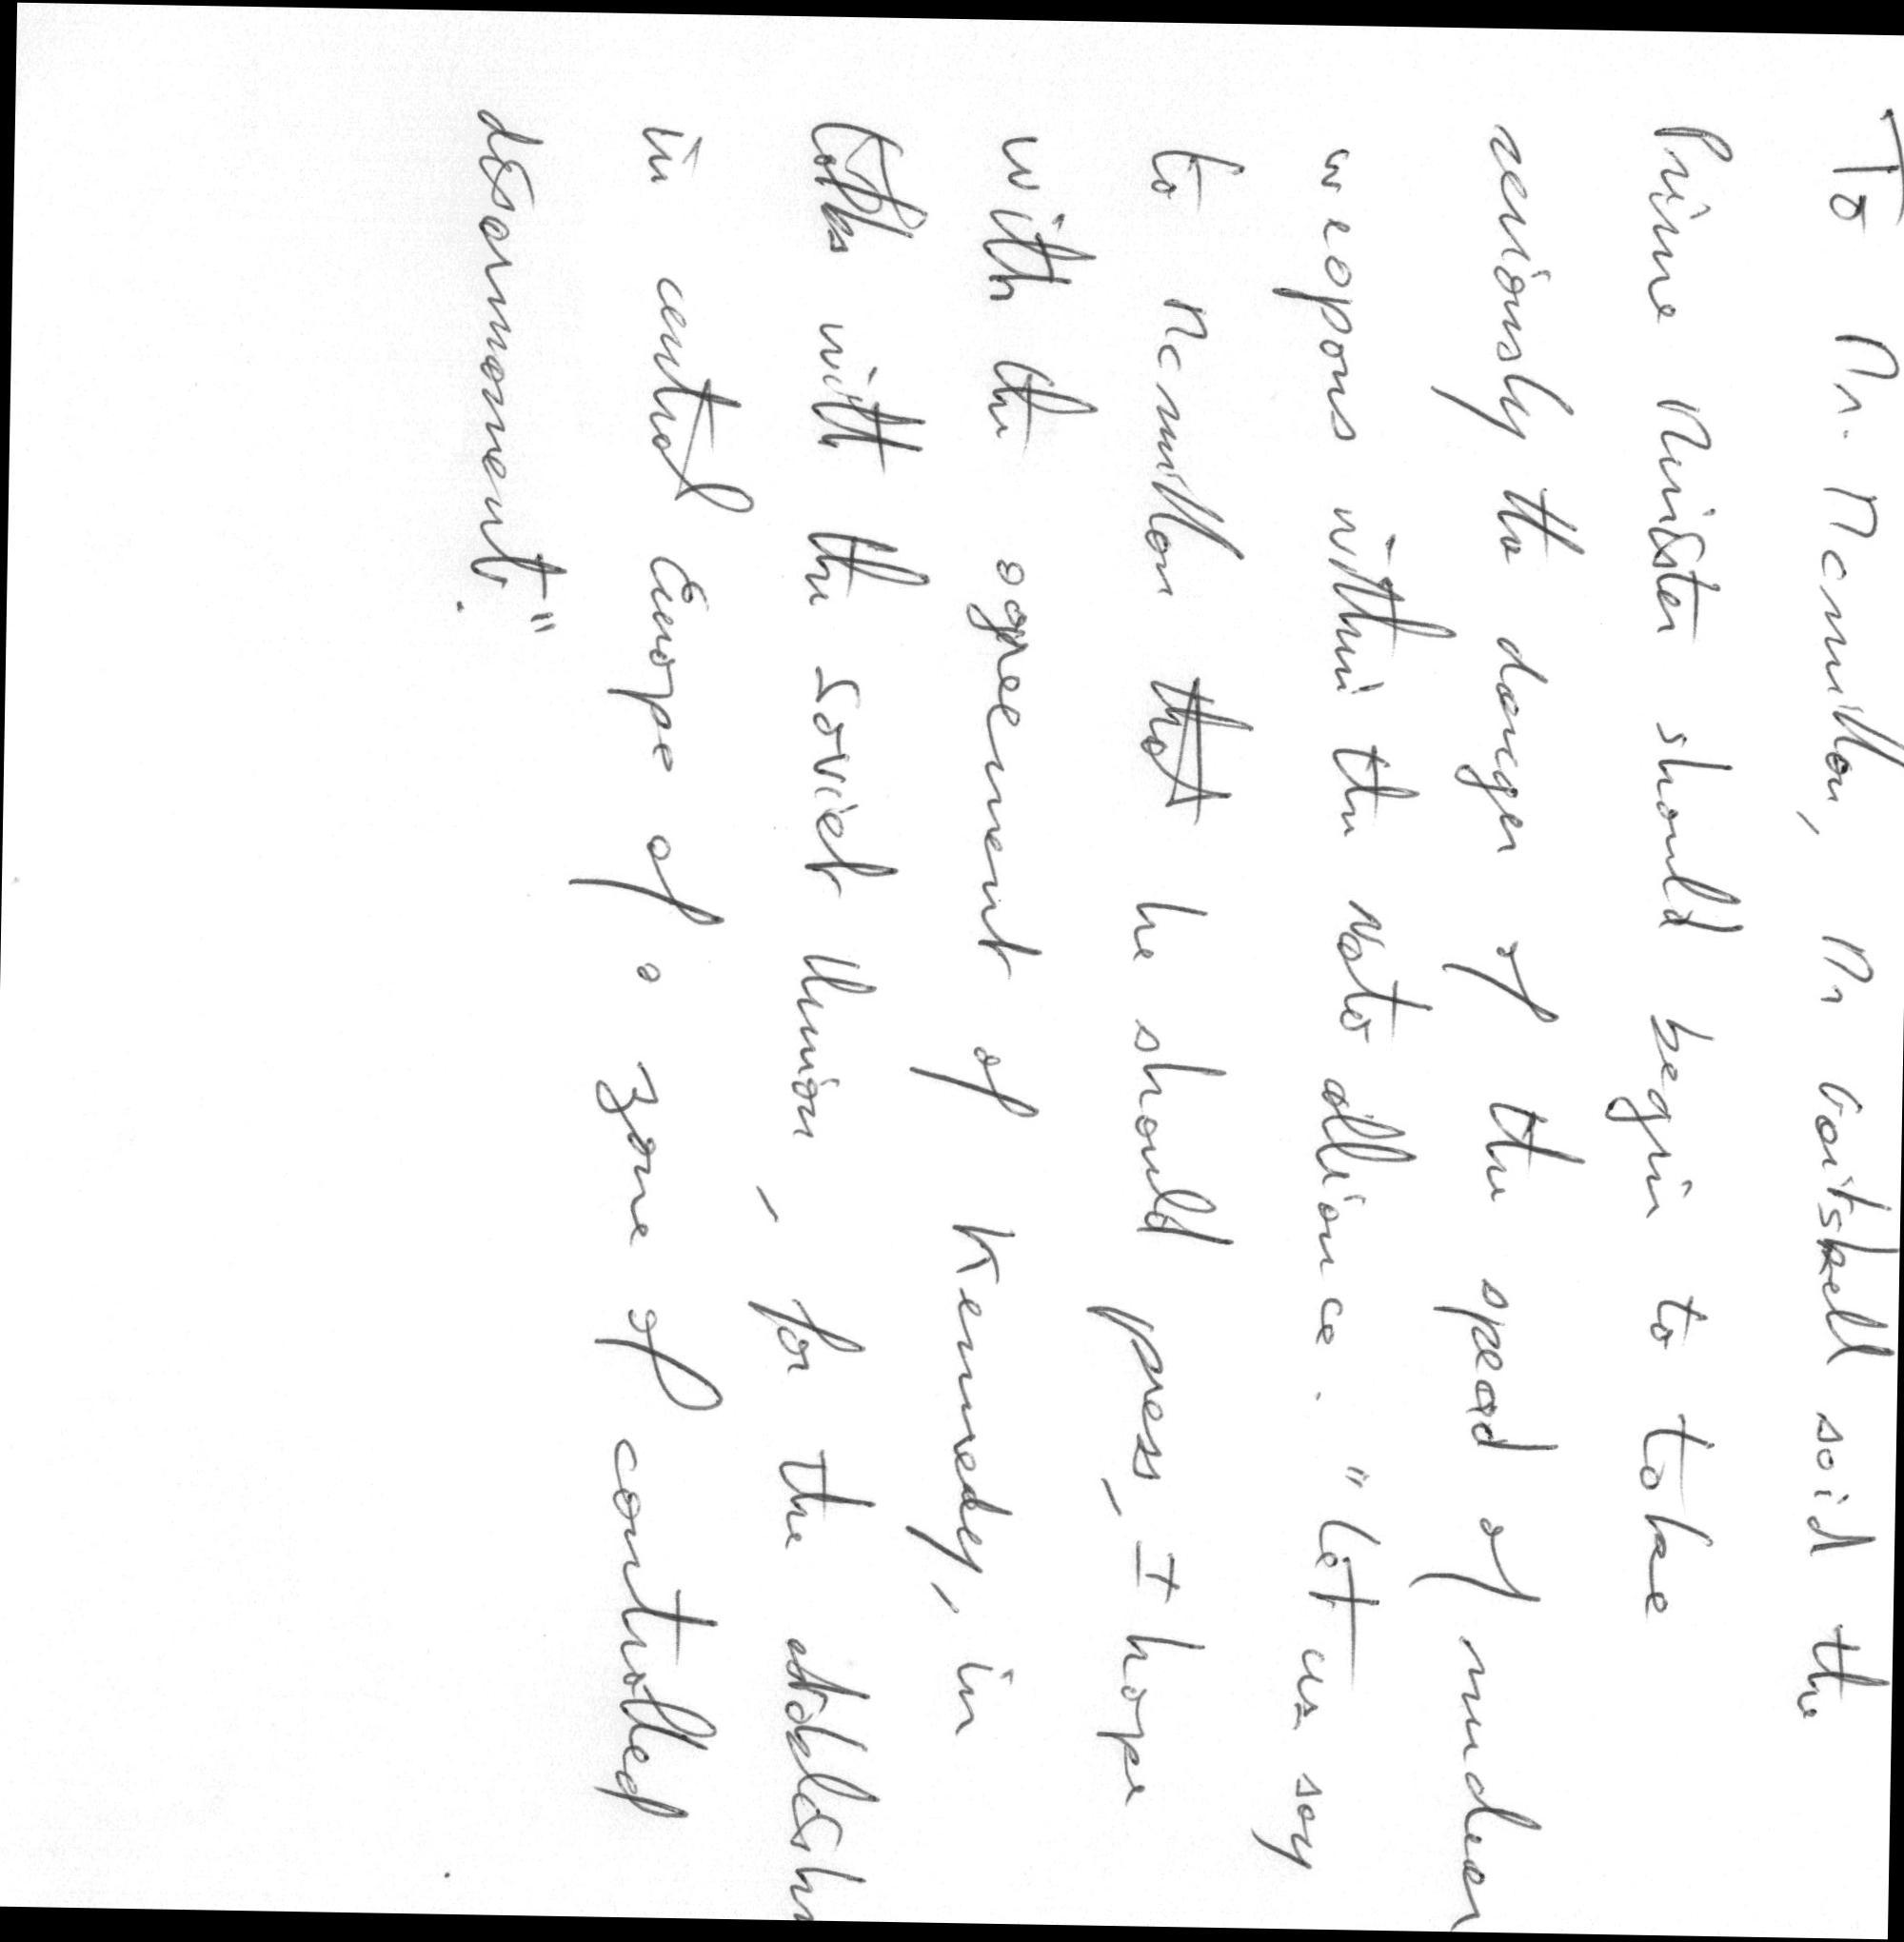 To Mr. Mcmillan, Mr Gaitskell said the
Prime Minister should begin to take
seriously the danger of the spead of nuclear
weapons within the Nato alliance. "Let us say
to Mcmillan that he should press, I hope
with the agreement of Kennedy, in
talks with the Soviet Union, for the
in central Europe of a zone of controlled
disarmament".